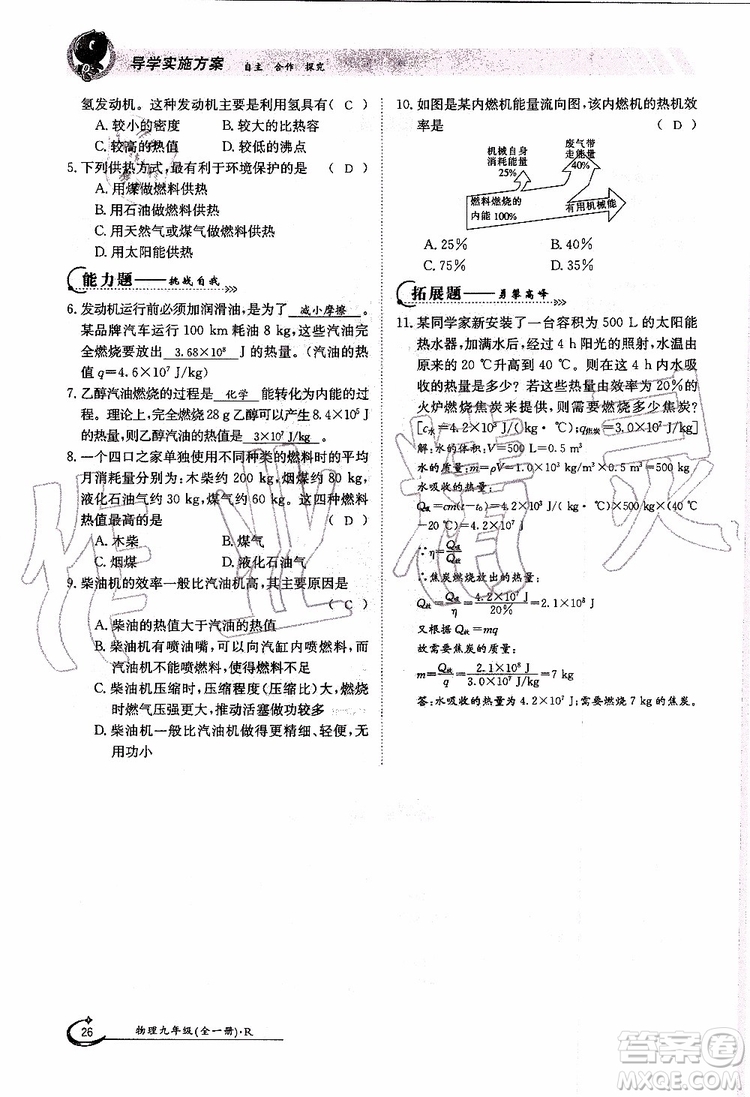 导学实施方案 自主 合作 探究
氢发动机。这种发动机主要是利用氢具有( C )
A. 较小的密度 B. 较大的比热容
C. 较高的热值 D. 较低的沸点
5. 下列供热方式,最有利于环境保护的是 ( D )
A. 用煤做燃料供热
B. 用石油做燃料供热
C. 用天然气或煤气做燃料供热
D. 用太阳能供热
能力题——挑战自我
6. 发动机运行前必须加润滑油,是为了 减小摩擦 。
某品牌汽车运行 100 km 耗油 8 kg,这些汽油完
全燃烧要放出 3.68×10⁸ J 的热量。(汽油的热
值 q=4.6×10⁷ J/kg)
7. 乙醇汽油燃烧的过程是 化学 能转化为内能的过
程。理论上,完全燃烧 28 g 乙醇可以产生 8.4×10⁵ J
的热量,则乙醇汽油的热值是 3×10⁷ J/kg 。
8. 一个四口之家单独使用不同种类的燃料时的平均
月消耗量分别为:木柴约 200 kg,烟煤约 80 kg,
液化石油气约 30 kg,煤气约 60 kg。这四种燃料
热值最高的是 ( D )
A. 木柴 B. 煤气
C. 烟煤 D. 液化石油气
9. 柴油机的效率一般比汽油机高,其主要原因是
( C )
A. 柴油的热值大于汽油的热值
B. 柴油机有喷油嘴,可以向汽缸内喷燃料,而汽
油机不能喷燃料,吸入燃料不足
C. 柴油机压缩时,空气压缩比汽油机更小,燃烧
时燃气压强更大,推动活塞做功较多
D. 柴油机一般比汽油机做得更精细、轻便,无
用功小
10. 如图是某内燃机能量流向图,该内燃机的热机效
率是 ( D )
机械自身
消耗能量
25%
废气带
走能量
40%
燃料燃烧的
内能 100%
有用机械能
A. 25% B. 40%
C. 75% D. 35%
拓展题——勇攀高峰
11. 某同学家新安装了一台容积为 500 L 的太阳能
热水器,加满水后,经过 4 h 阳光的照射,水温由
原来的 20 ℃升高到 40 ℃。则在这 4 h 内水吸
收的热量是多少?若这些热量由效率为 20%的
火炉燃烧焦炭来提供,则需要燃烧多少焦炭?
[c水=4.2×10³ J/(kg·℃),q焦炭=3.0×10⁷ J/kg]
解:水的体积:V=500 L=0.5 m³
水的质量:m=ρV=1.0×10³ kg/m³×0.5 m³=500 kg
水吸收的热量:
Q吸=cm(t-t₀)=4.2×10³ J/(kg·℃)×500 kg×(40
℃-20 ℃)=4.2×10⁷ J
∵η=Q吸/Q放
∴焦炭燃烧放出的热量:
Q放=Q吸/η=4.2×10⁷ J/20%=2.1×10⁸ J
又根据 Q放=mq
故需要焦炭的质量:
m=Q放/q=2.1×10⁸ J/3.0×10⁷ J/kg=7 kg
答:水吸收的热量为 4.2×10⁷ J;需要燃烧 7 kg 的焦炭。
作业精灵
26 物理九年级(全一册)·R
答案圈
MXQE.COM